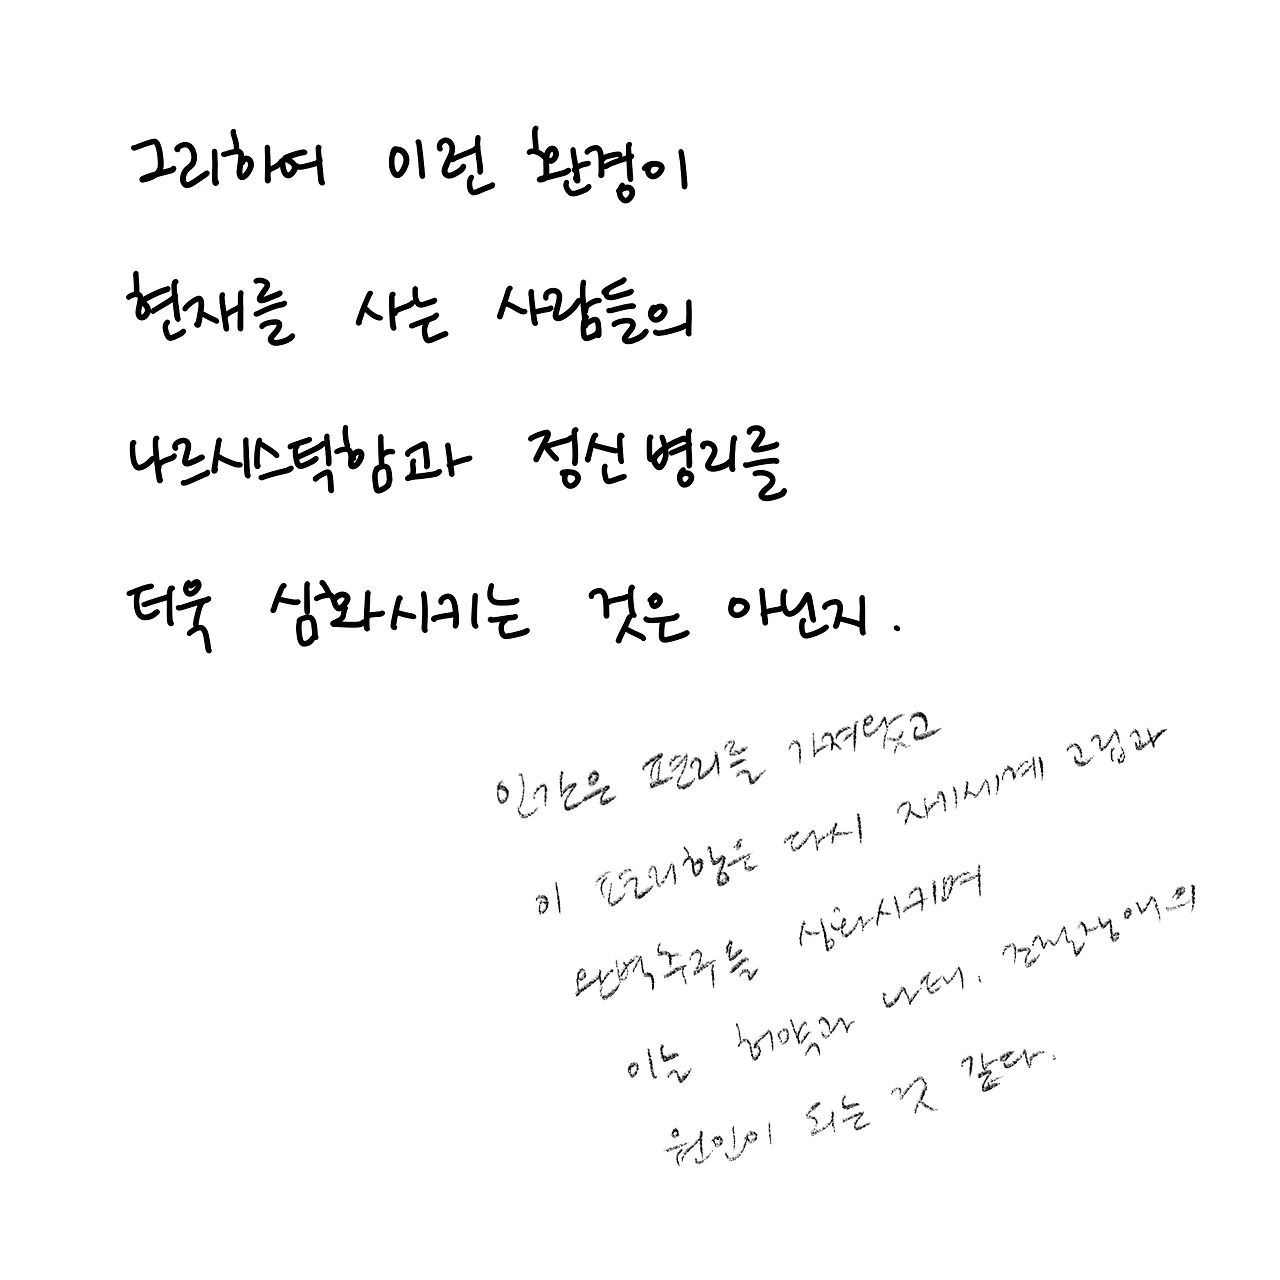 그리하여 이런 환경이
현재를 사는 사람들의
나르시스틱함과 정신병리를
더욱 심화시키는 것은 아닌지.
인간은 편리를 가져왔고
이 편리함은 다시 자기세계 고립과
완벽추구를 심화시키며
이는 허약과 나태, 조절장애의
원인이 되는 것 같다.